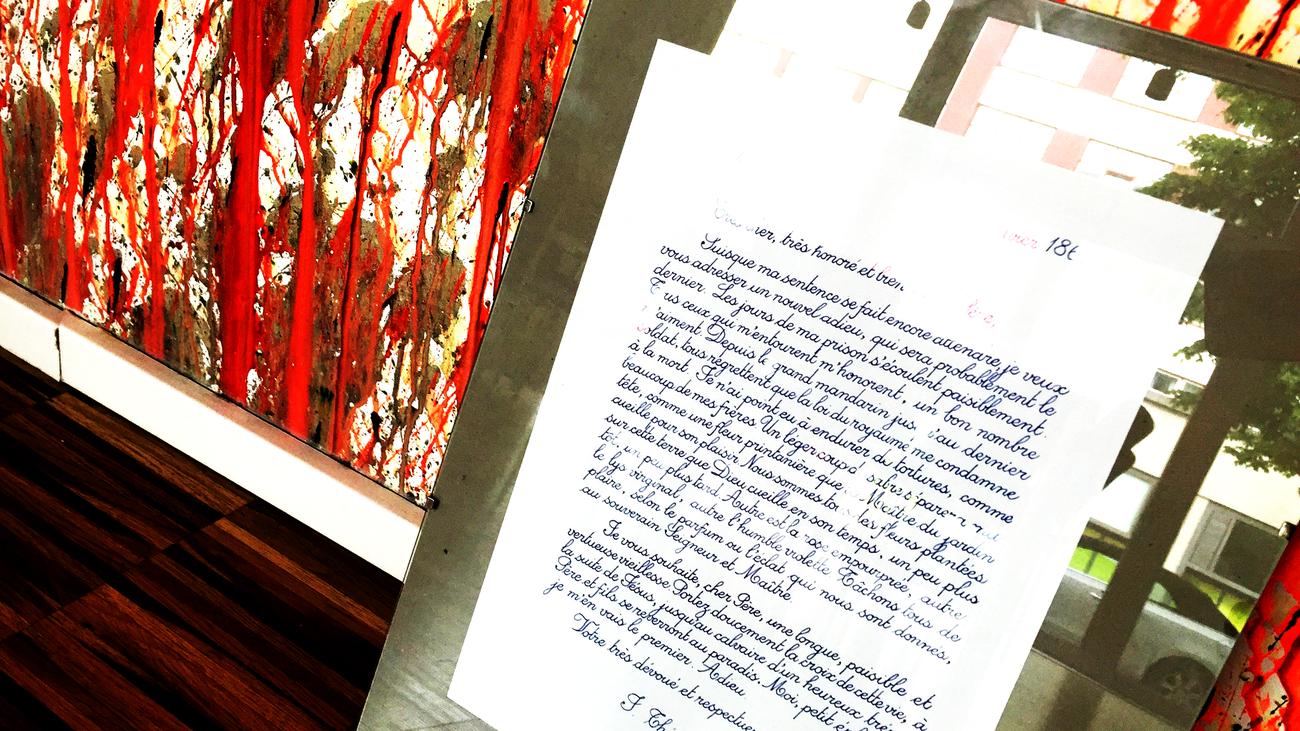 186
très honoré et
Puisque ma sentence se fait encore attendre, je veux
vous adresser un nouvel adieu, qui sera probablement le
dernier. Les jours de ma prison s'écoulent paisiblement.
ceux qui m'entourent m'honorent, un bon nombre
m'aiment. Depuis le grand mandarin au dernier
soldat, tous regrettent que la loi du royaume me condamne
à la mort. Je n'ai point eu à endurer de tortures, comme
beaucoup de mes frères. Un léger coup sabre
tête, comme une fleur printanière que Maître du jardin
cueille pour son plaisir. Nous sommes des fleurs plantées
sur cette terre que Dieu cueille en son temps, un peu plus
tôt, un peu plus tard. Autre est la rose empourprée, autre
le lys virginal, autre l'humble violette. Tâchons tous de
plaire, selon le parfum ou l'éclat qui nous sont donnés,
au souverain Seigneur et Maître.
Je vous souhaite, cher Père, une longue, paisible et
vertueuse vieillesse. Portez doucement la croix de cette vie, à
la suite de Jésus, jusqu'au calvaire d'un heureux
Père et fils se reverront au paradis. Moi, petit
je m'en vais le premier. Adieu
Votre très dévoué et